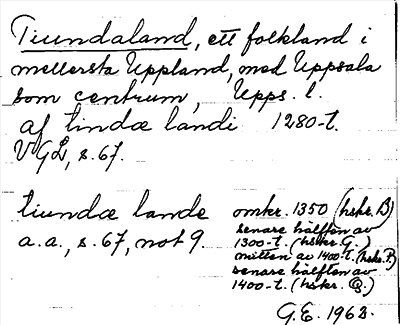 Tiundaland, ett folkland i
mellersta Uppland, med Uppsala
som centrum, Upps. l.
af tindæ landi 1280-t.
VGL, s. 67.
tiundæ lande omkr. 1350 (hskr. B)
a.a., s. 67, not 9. senare hälften av
1300-t. (hskr. G.)
mitten av 1400-t. (hskr. P.)
senare hälften av
1400-t. (hskr. Q.)
G.E. 1963.